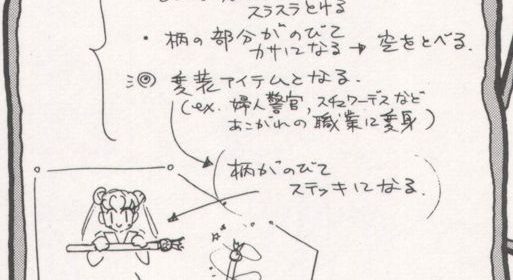 スラスラとける
・柄の部分がのびて
カサになる→空をとべる.
◎変装アイテムとなる.
(ex. 婦人警官, スチュワーデスなど
あこがれの職業に変身)
(柄がのびて
ステッキになる.)